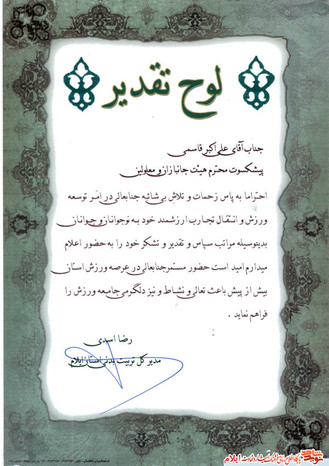 لوح تقدیر
جناب آقای علی اکبر قاسمی
پیشکسوت محترم هیئت جانبازان و معلولین
احتراما به پاس زحمات و تلاش بی شائبه جنابعالی در امر توسعه
ورزش و انتقال تجارب ارزشمند خود به نوجوانان و جوانان
بدینوسیله مراتب سپاس و تقدیر و تشکر خود را به حضور اعلام
میدارم امید است حضور مستمر جنابعالی در عرصه ورزش استان
بیش از پیش باعث تعالی و نشاط و نیز دلگرمی جامعه ورزش را
فراهم نماید .
رضا اسدی
مدیر کل تربیت بدنی استان ایلام